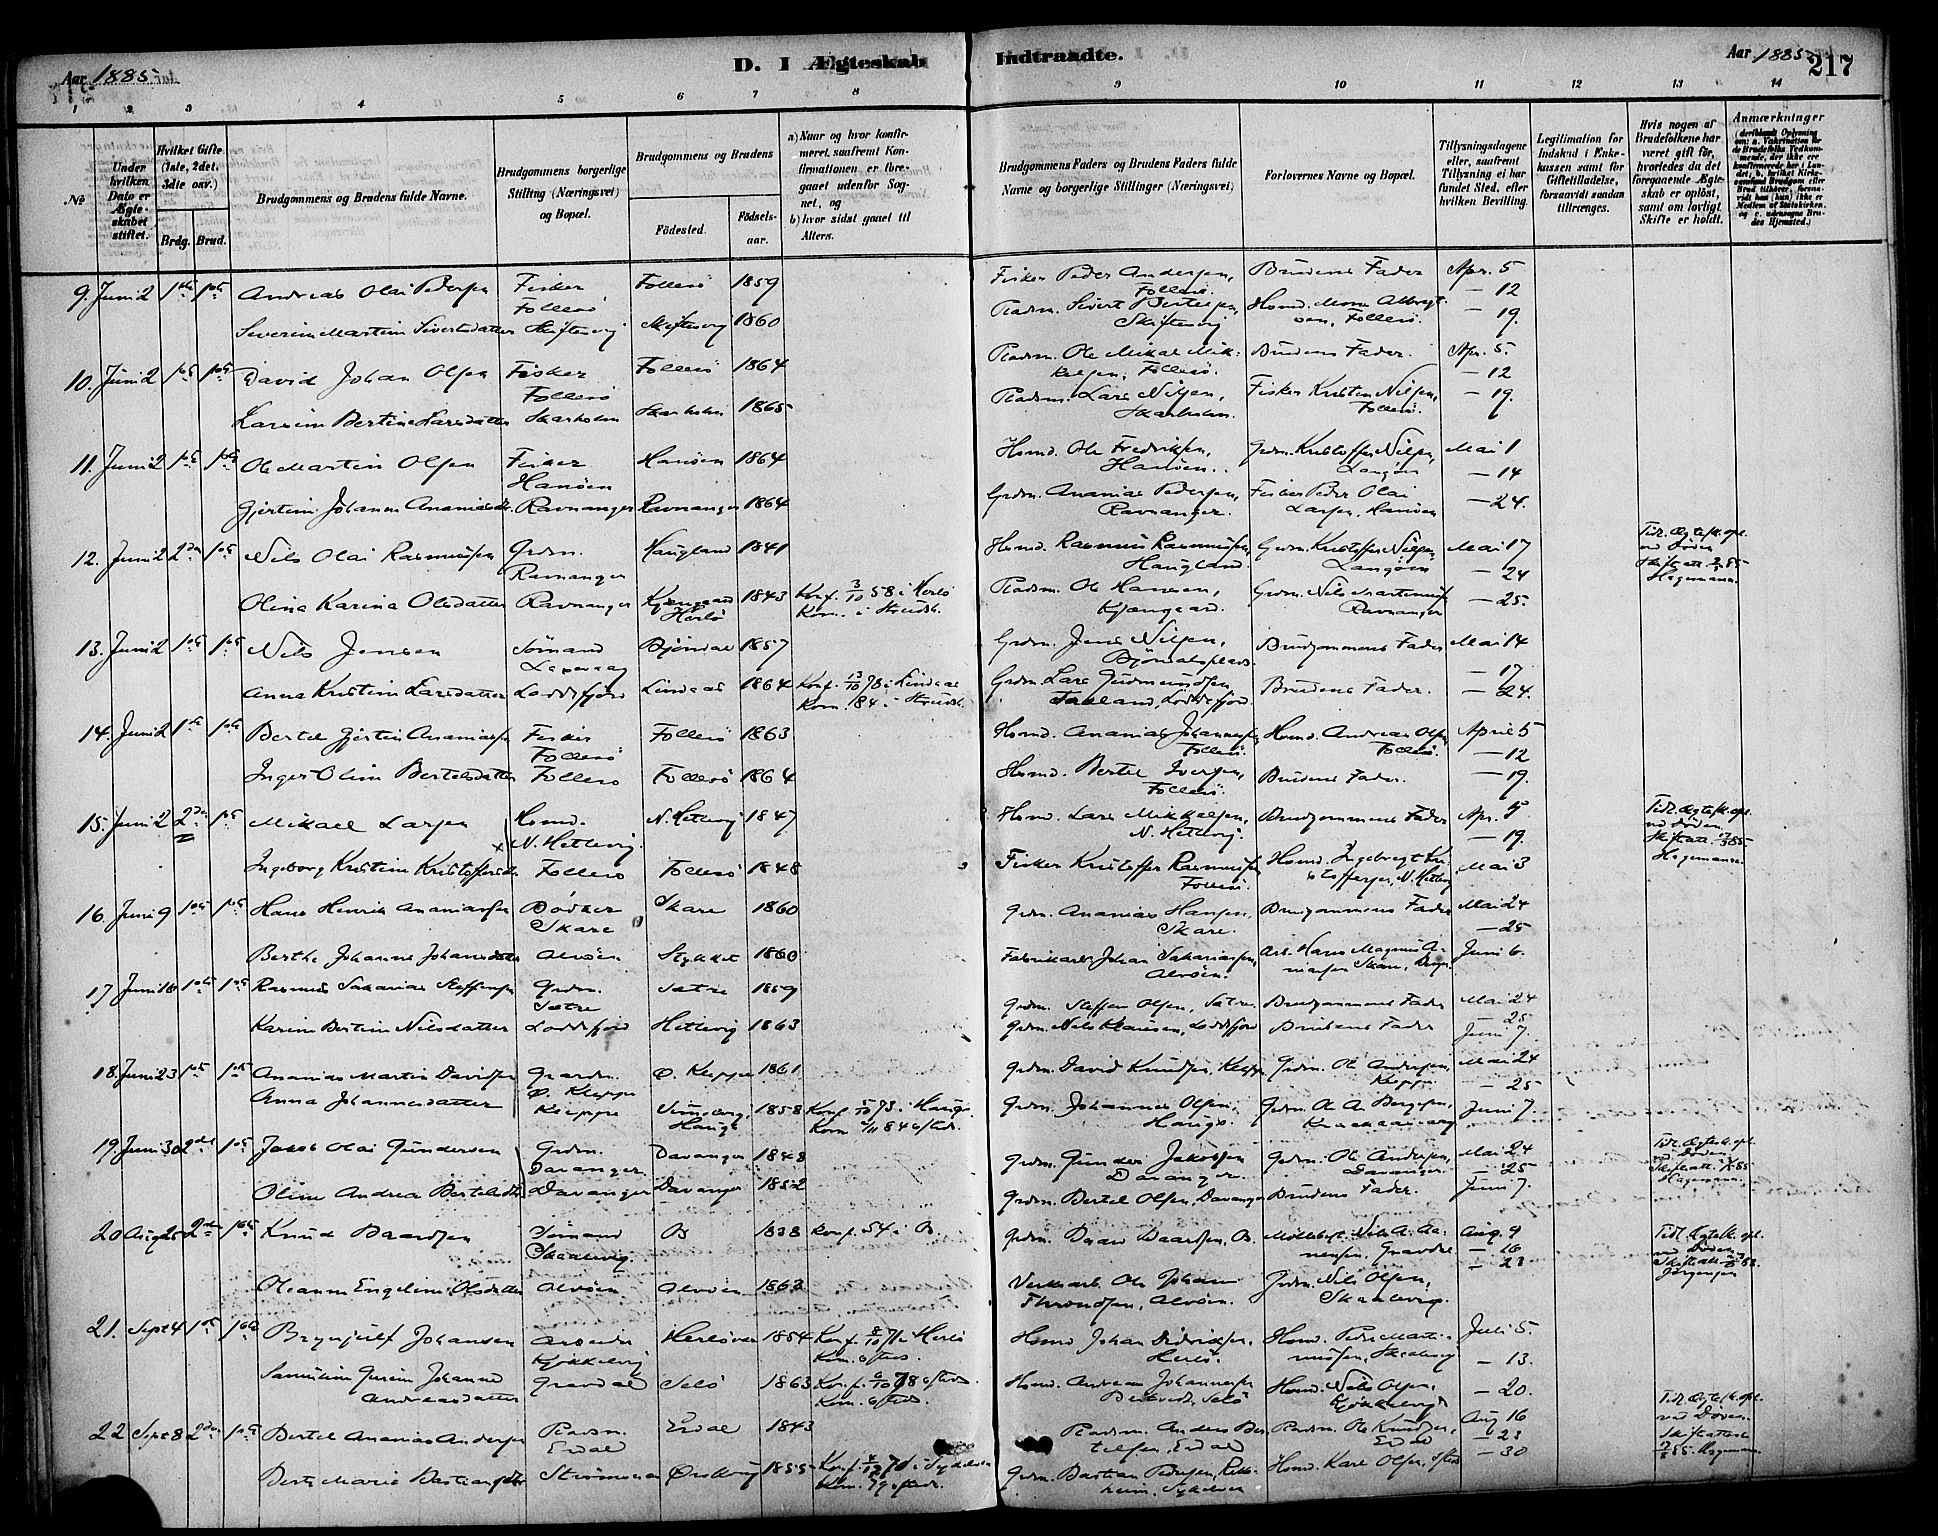 Aar 1885.
D. I Ægteskab Indtraadte.
Aar 1885.
217
1 2 3 4 5 6 7 8 9 10 11 12 13 14
№
Under hvilken Dato er Ægteskabet stiftet.
Hvilket Gifte (1ste, 2det, 3die osv.)
Brdg. Brud.
Brudgommens og Brudens fulde Navne.
Brudgommens borgerlige Stilling (Næringsvei) og Bopæl.
Brudgommens og Brudens
Fødested.
Fødselsaar.
a) Naar og hvor konfirmeret, saafremt Konfirmationen er foregaaet udenfor Sognet, og
b) hvor sidst gaaet til Alters.
Brudgommens Faders og Brudens Faders fulde Navne og borgerlige Stillinger (Næringsvei)
Forlovernes Navne og Bopæl.
Tillysningsdagene eller, saafremt Tillysning ei har fundet Sted, efter hvilken Bevilling.
Legitimation for Indskud i Enkekassen samt for Giftetilladelse, forsaavidt saadan tiltrænges.
Hvis nogen af Brudefolkene har været gift før, hvorledes da det foregaaende Ægteskab er opløst, samt om lovligt Skifte er holdt.
Anmærkninger
9. Juni 2 1ste 1ste Andreas Olai Pedersen Fisker Follesø Follesø 1859 Fisker Peder Andersen, Follesø. Brudens Fader Apr. 5 — 12
Severine Martine Sivertsdatter Skiftesvig Skiftesvig 1860 Pladsm. Sivert Bertelsen, Skiftesvig Husmd. Mons Albrigtsen, Follesø. — 19.
10. Juni 2 1ste 1ste David Johan Olsen Fisker Follesø Follesø 1864 Pladsm. Ole Mikal Mikkelsen, Follesø. Brudens Fader. Apr. 5. — 12
Larsine Bertine Larsdatter Skarholm Skarholm 1865 Pladsm. Lars Nilsen, Skarholm. Fisker Kristen Nilsen, Follesø. — 19.
11. Juni 2 1ste 1ste Ole Martin Olsen Fisker Hanøen Hanøen 1864 Husmd. Ole Fredriksen, Hanøen. Grdm. Kristoffer Nilsen, Langøen Mai 1 — 14
Gjertine Johanne Ananiasdtr. Ravnanger Ravnanger 1864 Grdm. Ananias Pedersen, Ravnanger. Fisker Peder Olai Larsen, Hanøen — 24.
12. Juni 2 2den 1ste Nils Olai Rasmussen Grdm. Ravnanger Haugland 1841 Husmd. Rasmus Rasmussen, Haugland. Grdm. Kristoffer Nilsen, Langøen Mai 17 — 24 Tidl. Ægtesk. opl. ved Døden Skifteatt. 85 Hagemann.
Olina Karina Olsdatter Ravnanger Herlø 1843 Konf. 3/10 58 i Herlø Kom. i Strudsh. Pladsm. Ole Hansen, Grdm. Nils Martinus Ravnanger — 25.
13. Juni 2 1ste 1ste Nils Jensen Sømand Bjøndal 1857 Grdm. Jens Nilsen, Bjøndalspleds. Brudgommens Fader Mai 14 — 17
Anna Kristine Larsdatter Loddefjord Lindaas 1864 Konf. 13/10 78 i Lindaas Kom. 184 i Strudsh. Grdm. Lars Gudmundsen, Loddefjord. Brudens Fader. — 24.
14. Juni 2 1ste 1ste Bertel Gjertin Ananiassen Fisker Follesø Follesø 1863 Husmd. Ananias Johannessen, Follesø. Husmd. Andreas Olsen, Follesø. April 5 — 12
Inger Oline Bertelsdatter Follesø Follesø 1864 Husmd. Bertel Iversen, Follesø. Brudens Fader. — 19.
15. Juni 2 2den 1ste Mikael Larsen Husmd. N. Hetlevig. N. Hetlevig 1847 Husmd. Lars Mikkelsen, N. Hetlevig. Brudgommens Fader Apr. 5 — 19. Tidl. Ægtesk. opl. ved Døden. Skifteatt. 85 Hagemann.
Ingeborg Kristine Kristoffersdtr. Follesø Follesø 1848 Fisker Kristoffer Rasmussen Follesø. Husmd. Ingebregt Kristoffersen, N. Hetlevig Mai 3
16 Juni 9 1ste 1ste Hans Henrik Ananiassen Bødker Skare Skare 1860 Grdm. Ananias Hansen, Skare. Brudgommens Fader Mai 24 — 25
Berthe Johanne Johansdatter Alvøen Stykket 1860 Fabrikarb. Johan Sakariassen, Alvøen. Arb. Hans Magnus Skare, Juni 6.
17 Juni 16 1ste 1ste Rasmus Sakarias Steffensen Grdm. Sætre Sætre 1859 Grdm. Steffen Olsen, Sætre Brudgommens Fader Mai 24 — 25
Karine Bertine Nilsdatter Loddefjord Hetlevig 1863 Grdm. Nils Loddefjord Brudens Fader Juni 7.
18. Juni 23 1ste 1ste Ananias Martin Davidsen Grdm. Ø. Kleppe Ø. Kleppe 1861 Grdm. David Knudsen, Kleppe Grdm. Ole Andersen, Kleppe. Mai 24 — 25
Anna Johannesdatter Kleppe Haugs 1858 Konf. 73 i Haugs. Kom. 84 ofsteds. Grdm. Johannes Olsen, Haugs. Grdm. Ole A. Juni 7.
19. Juni 30 2det 1ste Jakob Olai Gundersen Grdm. Davanger Davanger 1848 Grdm. Gunder Jakobsen Davanger. Grdm. Ole Andersen, Davanger. Mai 24 — 25 Tidl. Ægtesk. opl. ved Døden Skifteatt. 85 Hagemann.
Oline Andrea Bertelsdtr. Davanger Davanger 1852 Grdm. Bertel Olsen, Davanger Brudens Fader. Juni 7.
20 Aug 25 2den 1ste Knud Baardsen Sømand Skaalevig. Os 1838 Konf. 54 i Os Grdm. Baard Baardsen, Os. Møllebest. Nils A. Gravdal Aug. 9 — 16 — 23 Tidl. Ægtesk. opl. ved Døden. Skifteatt. 83. Jørgensen
Oleanne Engeline Olsdatter Alvøen Alvøen 1863 Verksarb. Ole Johan Throndsen, Alvøen. Grdm. Nils Olsen, Skaalevig.
21. Sept 4 1ste 1ste Brynjulf Johansen Arbeider Gjøkkelvig Herløen 1854 Konf. 8/10 71 i Herlø Kom. ofsteds. Husmd. Johan Didriksen, Herlø. Husmd. Peder Martinussen, Skaalevig Juli 5. — 13.
Johanne Andreasdatter Gravdal Selø 1863 Konf. 6/10 78 ofsteds. Kom. ofsteds. Husmd. Andreas Johannessen, Selø Husmd. Nils Olsen, Gjøkkelvig — 20.
22 Sept 8 2den 1ste Bertel Ananias Andersen Pladsm. Erdal Erdal 1843 Pladsm. Anders Bertelsen, Erdal Pladsm. Ole Knudsen, Erdal Aug 16 — 23 Tidl. Ægtesk. opl. ved Døden. Skifteattest 85. Hagemann
Berte Marie Bastiansdtr Strømsnes 1855 Grdm. Bastian Pedersen, Husmd. Karl Olsen, — 30